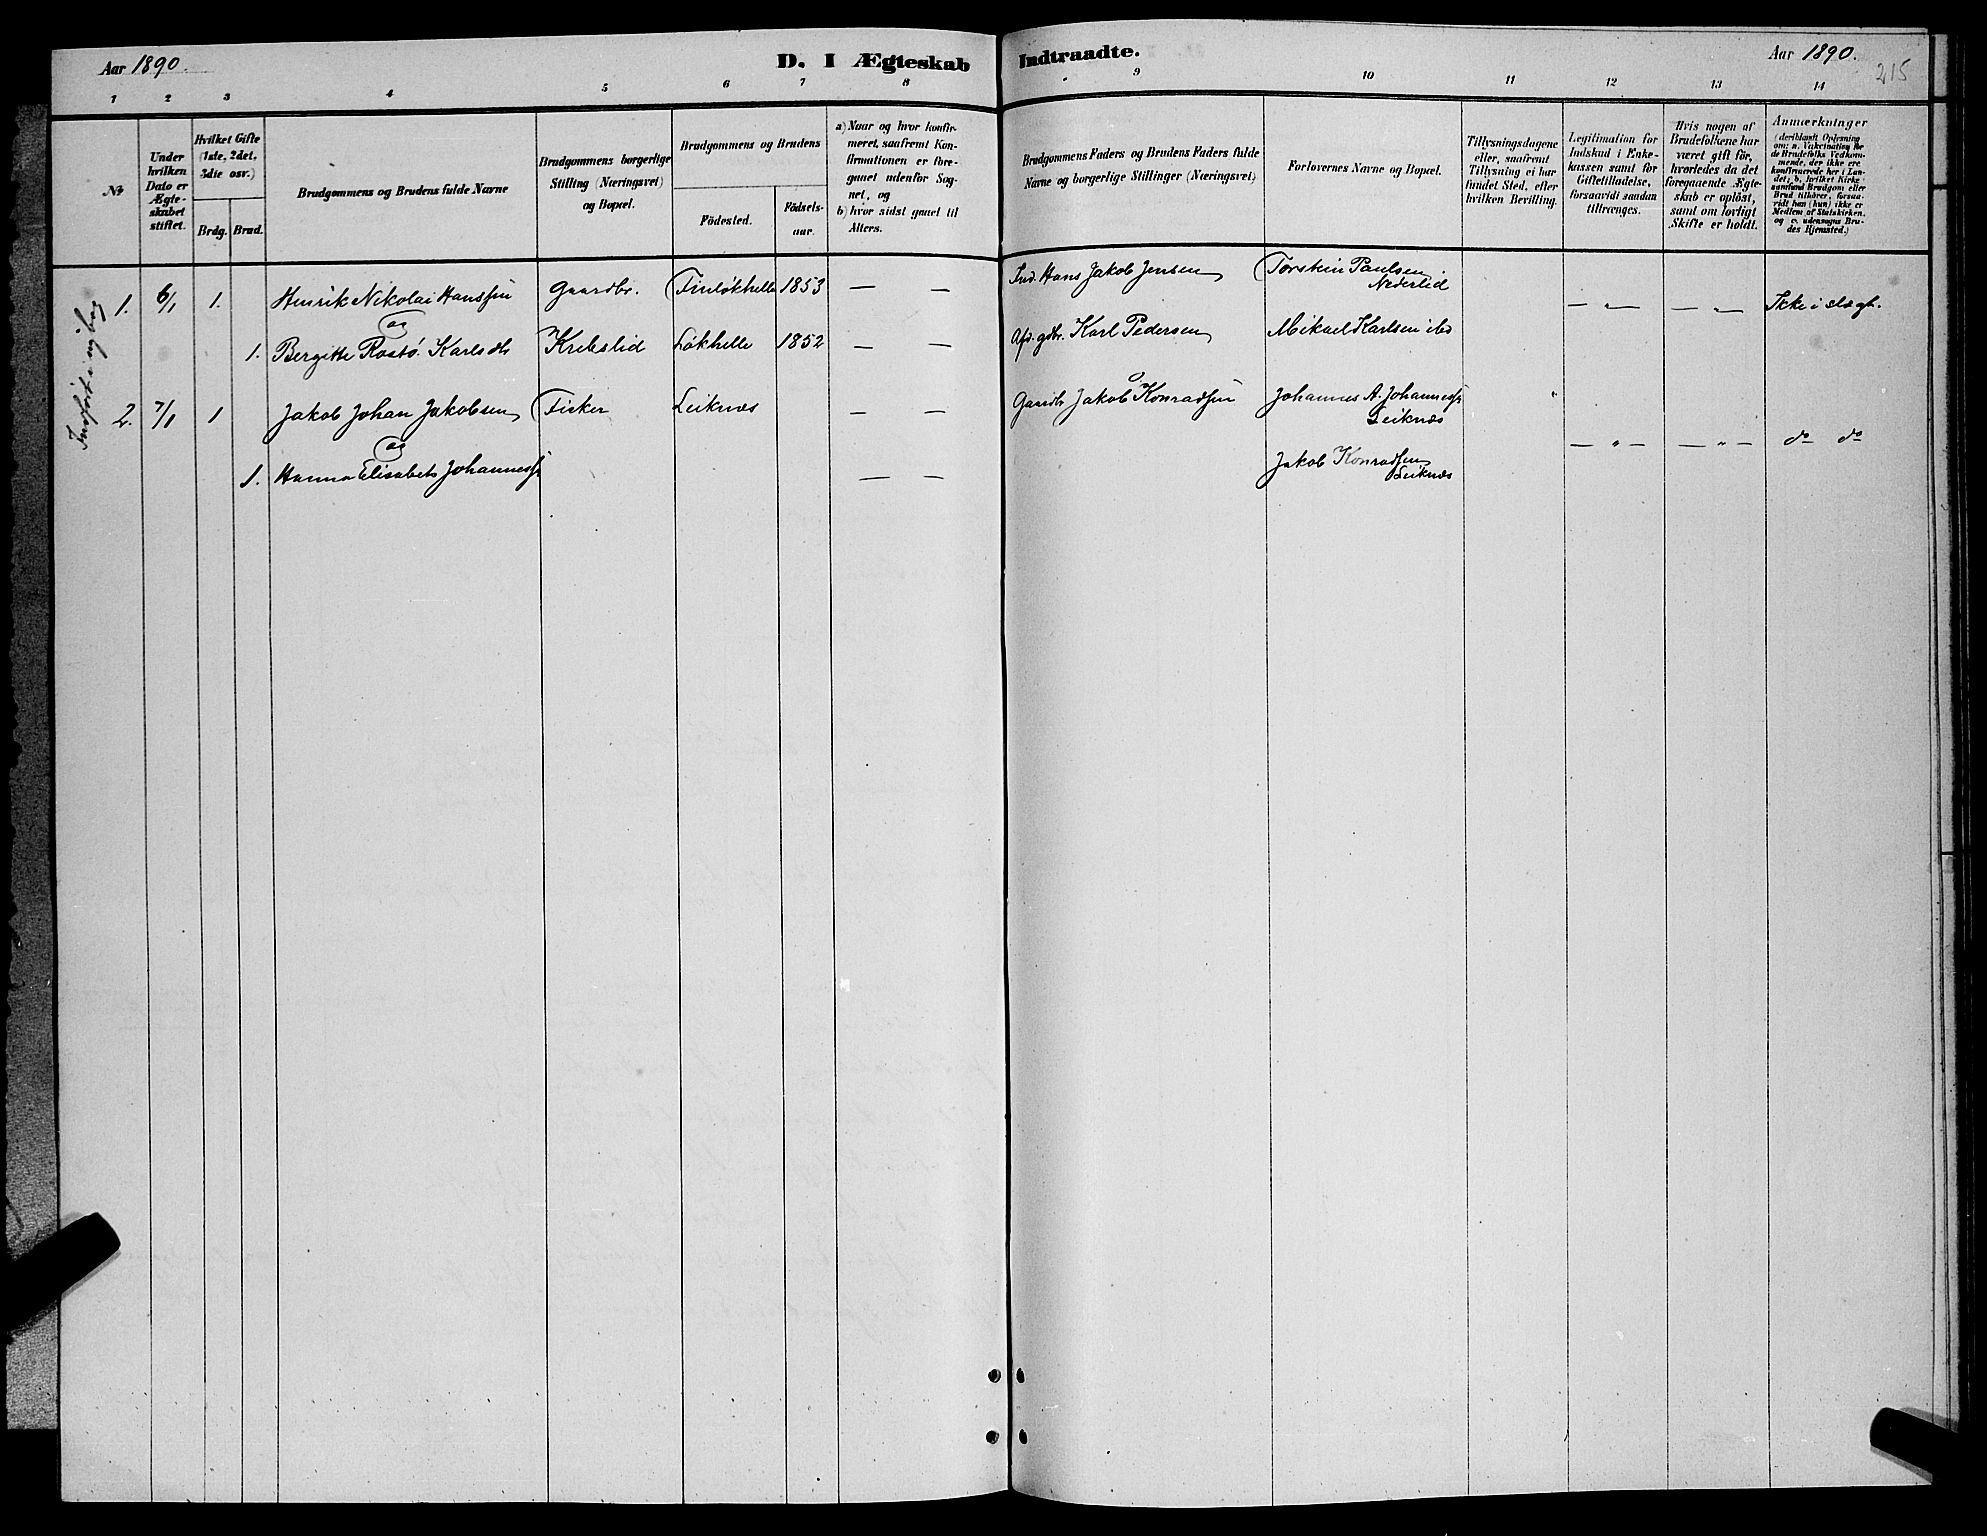 Aar 1890.
D. I Ægteskab Indtraadte.
Aar 1890.
215
1 2 3 4 5 6 7 8 9 10 11 12 13 14
№
Under
hvilken
Dato er
Ægte-
skabet
stiftet.
Hvilket Gifte
(1ste, 2det,
3die osv.)
Brdg. Brud.
Brudgommens og Brudens fulde Navne
Brudgommens borgerlige
Stilling (Næringsvei)
og Bopæl.
Brudgommens og Brudens
Födested.
Födsels-
aar.
a) Naar og hvor konfir-
meret, saafremt Kon-
firmationen er fore-
gaaet udenfor Sog-
net, og
b) hvor sidst gaaet til
Alters.
Brudgommens Faders og Brudens Faders fulde
Navne og borgerlige Stillinger (Næringsvei)
Forlovernes Navne og Bopæl.
Tillysningsdagene
eller, saafremt
Tillysning ei har
fundet Sted, efter
hvilken Bevilling.
Legitimation for
Indskud i Enke-
kassen samt for
Giftetilladelse,
forsaavidt saadan
tiltrænges.
Hvis nogen af
Brudefolkene har
været gift för,
hvorledes da det
foregaaende Ægte-
skab er oplöst,
samt om lovligt
Skifte er holdt.
Anmærkninger
(deriblandt Oplysning
om: a. Vakcination for
de Brudefolks Vedkom-
mende, der ikke ere
konfirmerede her i Lan-
det; b. hvilket Kirke-
samfund Brudgom eller
Brud tilhörer, forsaa-
vidt han (hun) ikke er
Medlem af Statskirken,
og c. udensogns Bru-
des Hjemsted.)
Indført i ny bog
1. 6/1 1. Henrik Nikolai Hanssen Gaardbr. Finløkhelle 1853 — — Ind. Hans Jakob Jensen Torstein Paulsen
Nederlid
— „ — — „ — Ikke i slægt.
og
1. Bergitte Rostø Karlsdtr Krebslid Løkhelle 1852 — — Afd. gdbr. Karl Pedersen Mikael Karlsen ibd
2. 7/1 1 Jakob Johan Jakobsen Fisker Leiknæs — — Gaardbr Jakob Konradsen Johannes A. Johannessen
Leiknæs
og
— „ — — „ — do do
1. Hanna Elisabeth Johannessen — — Jakob Konradsen
Leiknæs